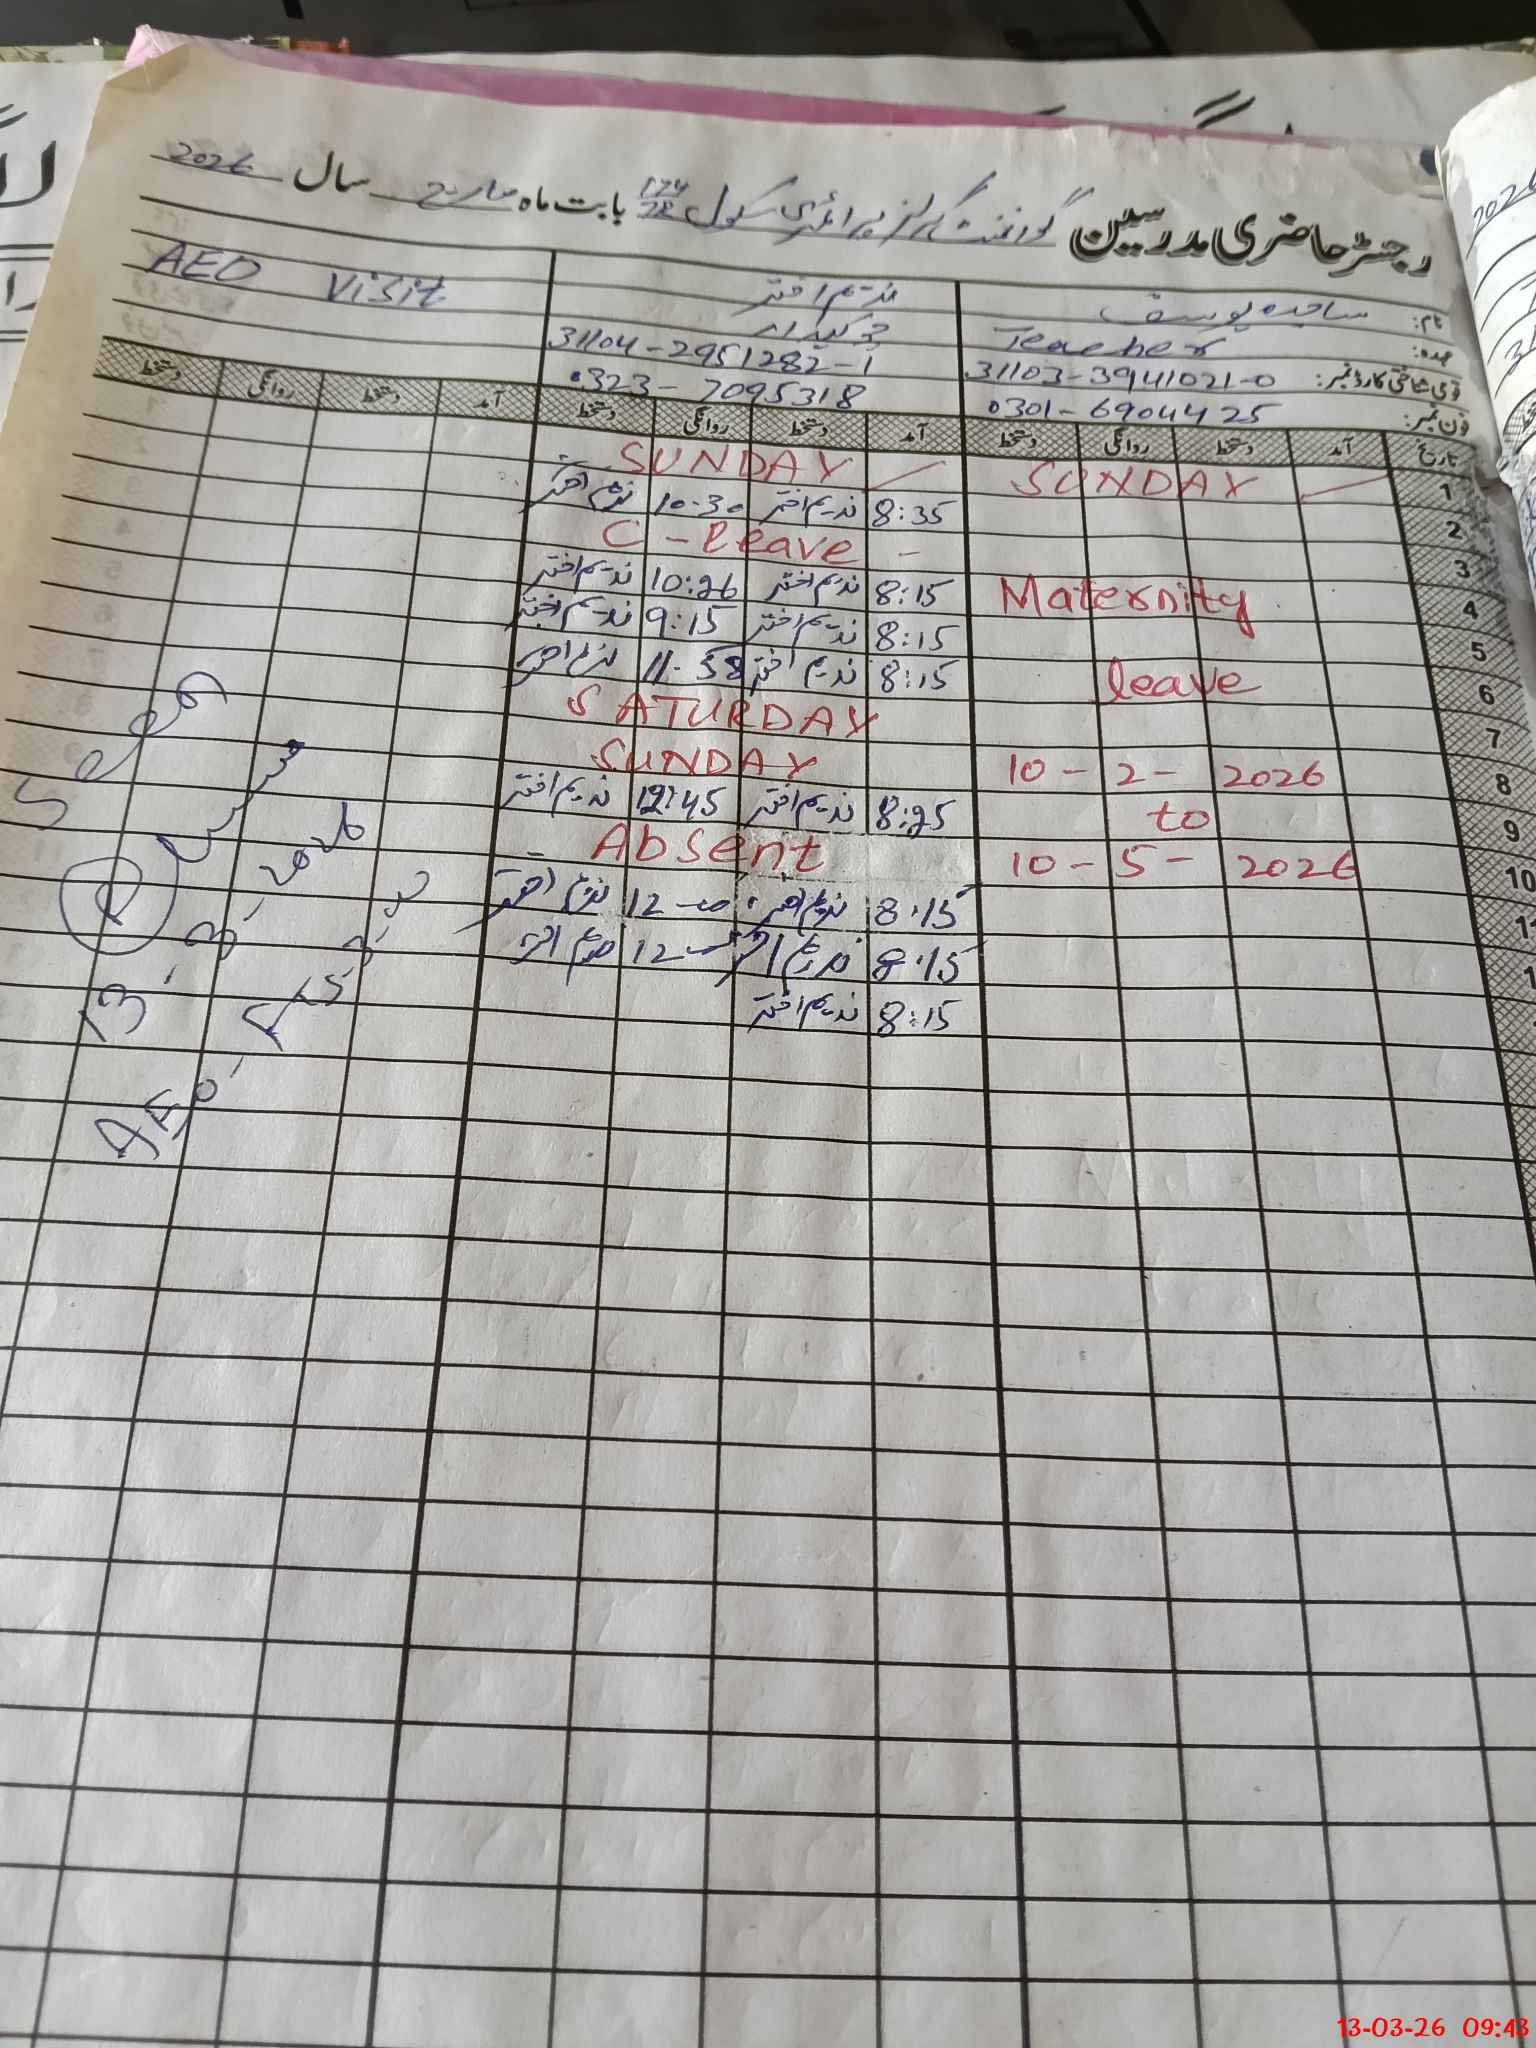 رجسٹر حاضری مدرسین گورنمنٹ گرلز پرائمری سکول بابت ماہ مارچ سال 2026
نام: ساجدہ یوسف ندیم اختر AEO Visit
عہدہ: Teacher چوکیدار
قومی شناختی کارڈ نمبر: 31103-3941021-0 31104-2951282-1
فون نمبر: 0301-6904425 0323-7095318
تاریخ آمد دستخط روانگی دستخط آمد دستخط روانگی دستخط آمد دستخط روانگی دستخط
1 SUNDAY SUNDAY
2 8:35 ندیم اختر 10-30 ندیم اختر
3 C-Leave -
4 Maternity 8:15 ندیم اختر 10:26 ندیم اختر
5 8:15 ندیم اختر 9:15 ندیم اختر
6 leave 8:15 ندیم اختر 11-58 ندیم اختر
7 SATURDAY
8 10-2-2026 SUNDAY
9 to 8:25 ندیم اختر 12:45 ندیم اختر
10 10-5-2026 Absent
8:15 ندیم اختر 12-00 ندیم اختر
8:15 ندیم اختر 12-00 ندیم اختر
8:15 ندیم اختر
Seen
13-3-2026
AEO
13-03-26 09:43